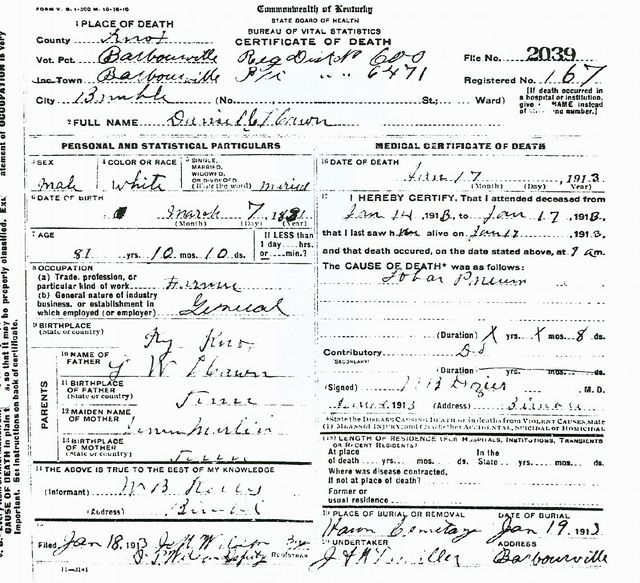 FORM V. S. 1-500 M. 10-16-10
Commonwealth of Kentucky
STATE BOARD OF HEALTH
BUREAU OF VITAL STATISTICS
CERTIFICATE OF DEATH
1 PLACE OF DEATH
County Knox
Vot. Pct. Barbourville Reg Dist No 600 File No. 2039
Inc Town Barbourville Pri " " 6471 Registered No. 167
City Bimble (No. St.; Ward) [If death occurred in a hospital or institution, give NAME instead of number.]
2 FULL NAME
PERSONAL AND STATISTICAL PARTICULARS
3 SEX male
4 COLOR OR RACE white
5 SINGLE, MARRIED, WIDOWED, OR DIVORCED (Write the word) married
6 DATE OF BIRTH March 7, 1831
(Month) (Day) (Year)
7 AGE 81 yrs. 10 mos. 10 ds.
If LESS than 1 day....hrs. or....min.?
8 OCCUPATION
(a) Trade, profession, or particular kind of work Farmer
(b) General nature of industry business, or establishment in which employed (or employer) General
9 BIRTHPLACE
(State or country) Ky Knox
10 NAME OF FATHER W
11 BIRTHPLACE OF FATHER
(State or country) Tenn
12 MAIDEN NAME OF MOTHER
13 BIRTHPLACE OF MOTHER
(State or country) Tenn
PARENTS
14 THE ABOVE IS TRUE TO THE BEST OF MY KNOWLEDGE
(Informant) W B
(Address) Bimble
Filed Jan 18, 1913
REGISTRAR
11-3184
MEDICAL CERTIFICATE OF DEATH
16 DATE OF DEATH
Jan 17, 1913
(Month) (Day) (Year)
17 I HEREBY CERTIFY, That I attended deceased from
Jan 14, 1913, to Jan 17, 1913,
that I last saw him alive on Jan 17, 1913,
and that death occured, on the date stated above, at 7 am.
The CAUSE OF DEATH* was as follows:
Lobar Pneum
(Duration) X yrs. X mos. 8 ds.
Contributory
SECONDARY
(Duration) yrs. mos. ds.
(Signed) Dozier M. D.
1913 (Address)
*State the DISEASE CAUSING DEATH or in deaths from VIOLENT CAUSES, state
(1) MEANS OF INJURY and (2) whether ACCIDENTAL, SUICIDAL or HOMICIDAL
18 LENGTH OF RESIDENCE (FOR HOSPITALS, INSTITUTIONS, TRANSIENTS OR RECENT RESIDENTS)
At place of death ..... yrs. ..... mos. ..... ds. In the State ..... yrs. ..... mos. ..... ds.
Where was disease contracted,
If not at place of death?
Former or
usual residence
19 PLACE OF BURIAL OR REMOVAL
Cemetary
DATE OF BURIAL
Jan 19, 1913
20 UNDERTAKER
ADDRESS
Barbourville